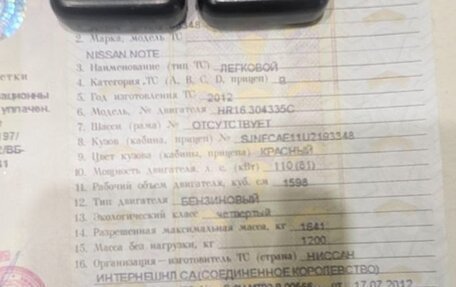 2. Марка, модель ТС
NISSAN NOTE
3. Наименование (тип ТС) ЛЕГКОВОЙ
4. Категория ТС (А, В, С, D, прицеп) В
5. Год изготовления ТС 2012
6. Модель, № двигателя HR16 304335C
7. Шасси (рама) № ОТСУТСТВУЕТ
8. Кузов (кабина, прицеп) № SJNFCAE11U2193348
9. Цвет кузова (кабины, прицепа) КРАСНЫЙ
10. Мощность двигателя, л. с. (кВт) 110 (81)
11. Рабочий объем двигателя, куб. см 1598
12. Тип двигателя БЕНЗИНОВЫЙ
13. Экологический класс четвертый
14. Разрешенная максимальная масса, кг 1641
15. Масса без нагрузки, кг 1200
16. Организация – изготовитель ТС (страна) НИССАН
ИНТЕРНЕШНЛ СА(СОЕДИНЕННОЕ КОРОЛЕВСТВО)
от 17.07.2012